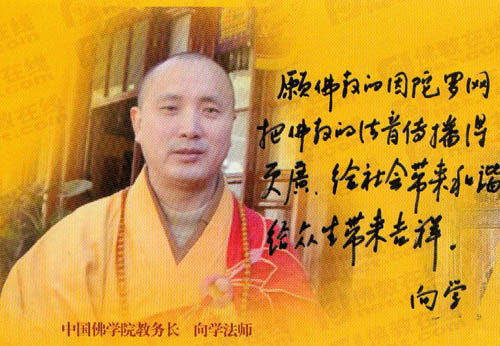 愿佛教的因陀罗网
把佛教的法音传播得
更广、给社会带来和谐
给众生带来吉祥。
向学
中国佛学院教务长 向学法师